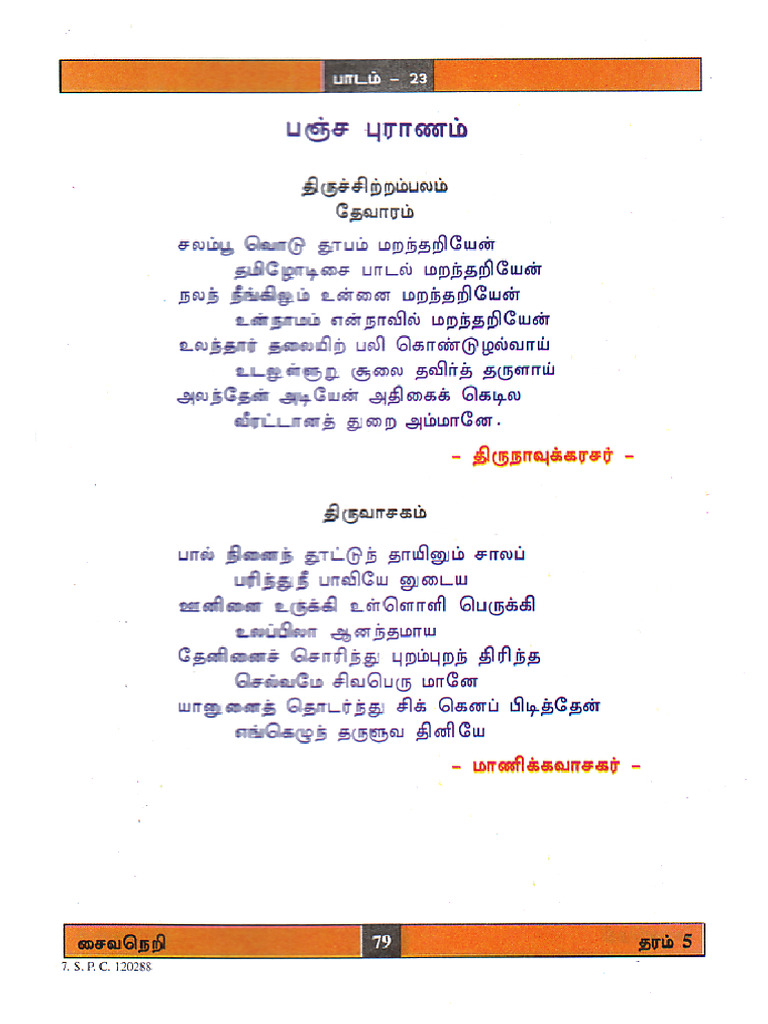 பாடம் – 23
பஞ்ச புராணம்
திருச்சிற்றம்பலம்
தேவாரம்
சலம்பூ வொடு தூபம் மறந்தறியேன்
தமிழோடிசை பாடல் மறந்தறியேன்
நலந் நீங்கிலும் உன்னை மறந்தறியேன்
உன்நாமம் என்நாவில் மறந்தறியேன்
உலந்தார் தலையிற் பலி கொண்டுழல்வாய்
உடலுள்ளுறு சூலை தவிர்த் தருளாய்
அலந்தேன் அடியேன் அதிகைக் கெடில
வீரட்டானத் துறை அம்மானே.
– திருநாவுக்கரசர் –
திருவாசகம்
பால் நினைந் தூட்டுந் தாயினும் சாலப்
பரிந்துநீ பாவியே னுடைய
ஊனினை உருக்கி உள்ளொளி பெருக்கி
உலப்பிலா ஆனந்தமாய
தேனினைச் சொரிந்து புறம்புறந் திரிந்த
செல்வமே சிவபெரு மானே
யானுனைத் தொடர்ந்து சிக் கெனப் பிடித்தேன்
எங்கெழுந் தருளுவ தினியே
– மாணிக்கவாசகர் –
சைவநெறி 79 தரம் 5
7. S. P. C. 120288